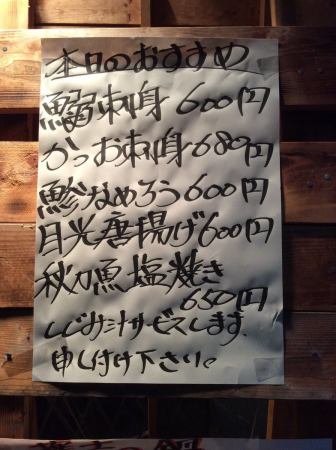 本日のおすすめ
鰯刺身 600円
かつお刺身 680円
鯵なめろう 600円
目光唐揚げ 600円
秋刀魚塩焼き
650円
しじみ汁サービスします
申し付け下さい。